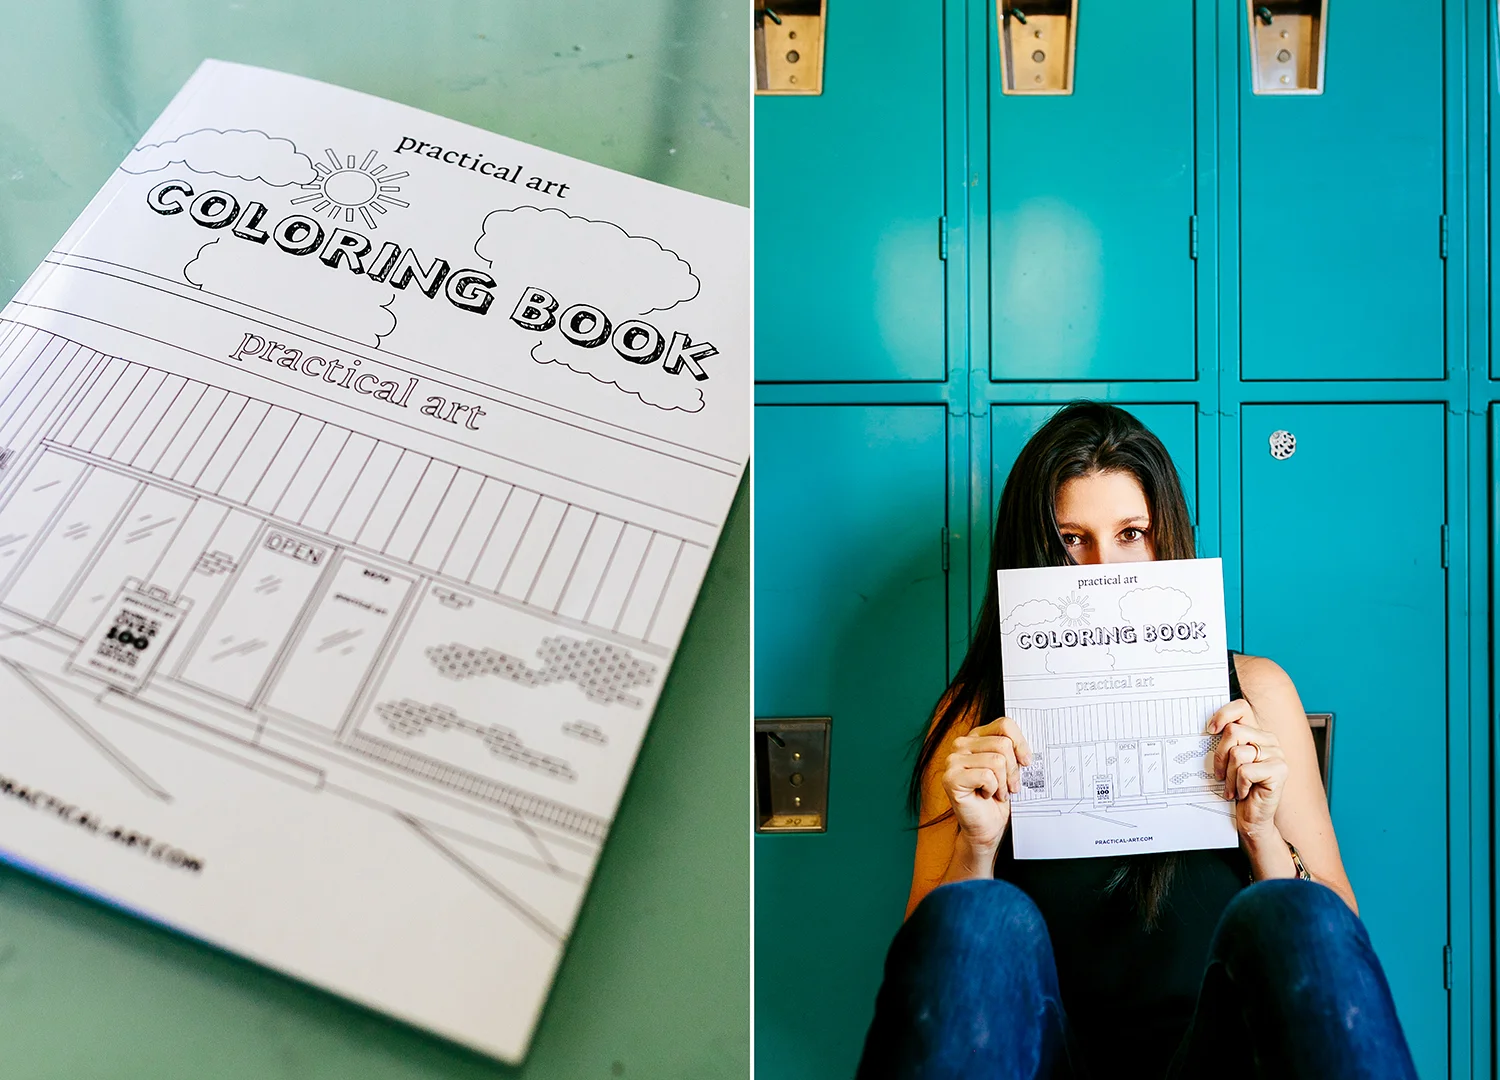 practical art
COLORING BOOK
practical art
OPEN
practical art
OVER
100
PRACTICAL-ART.COM
practical art
COLORING BOOK
practical art
OPEN
100
PRACTICAL-ART.COM
90